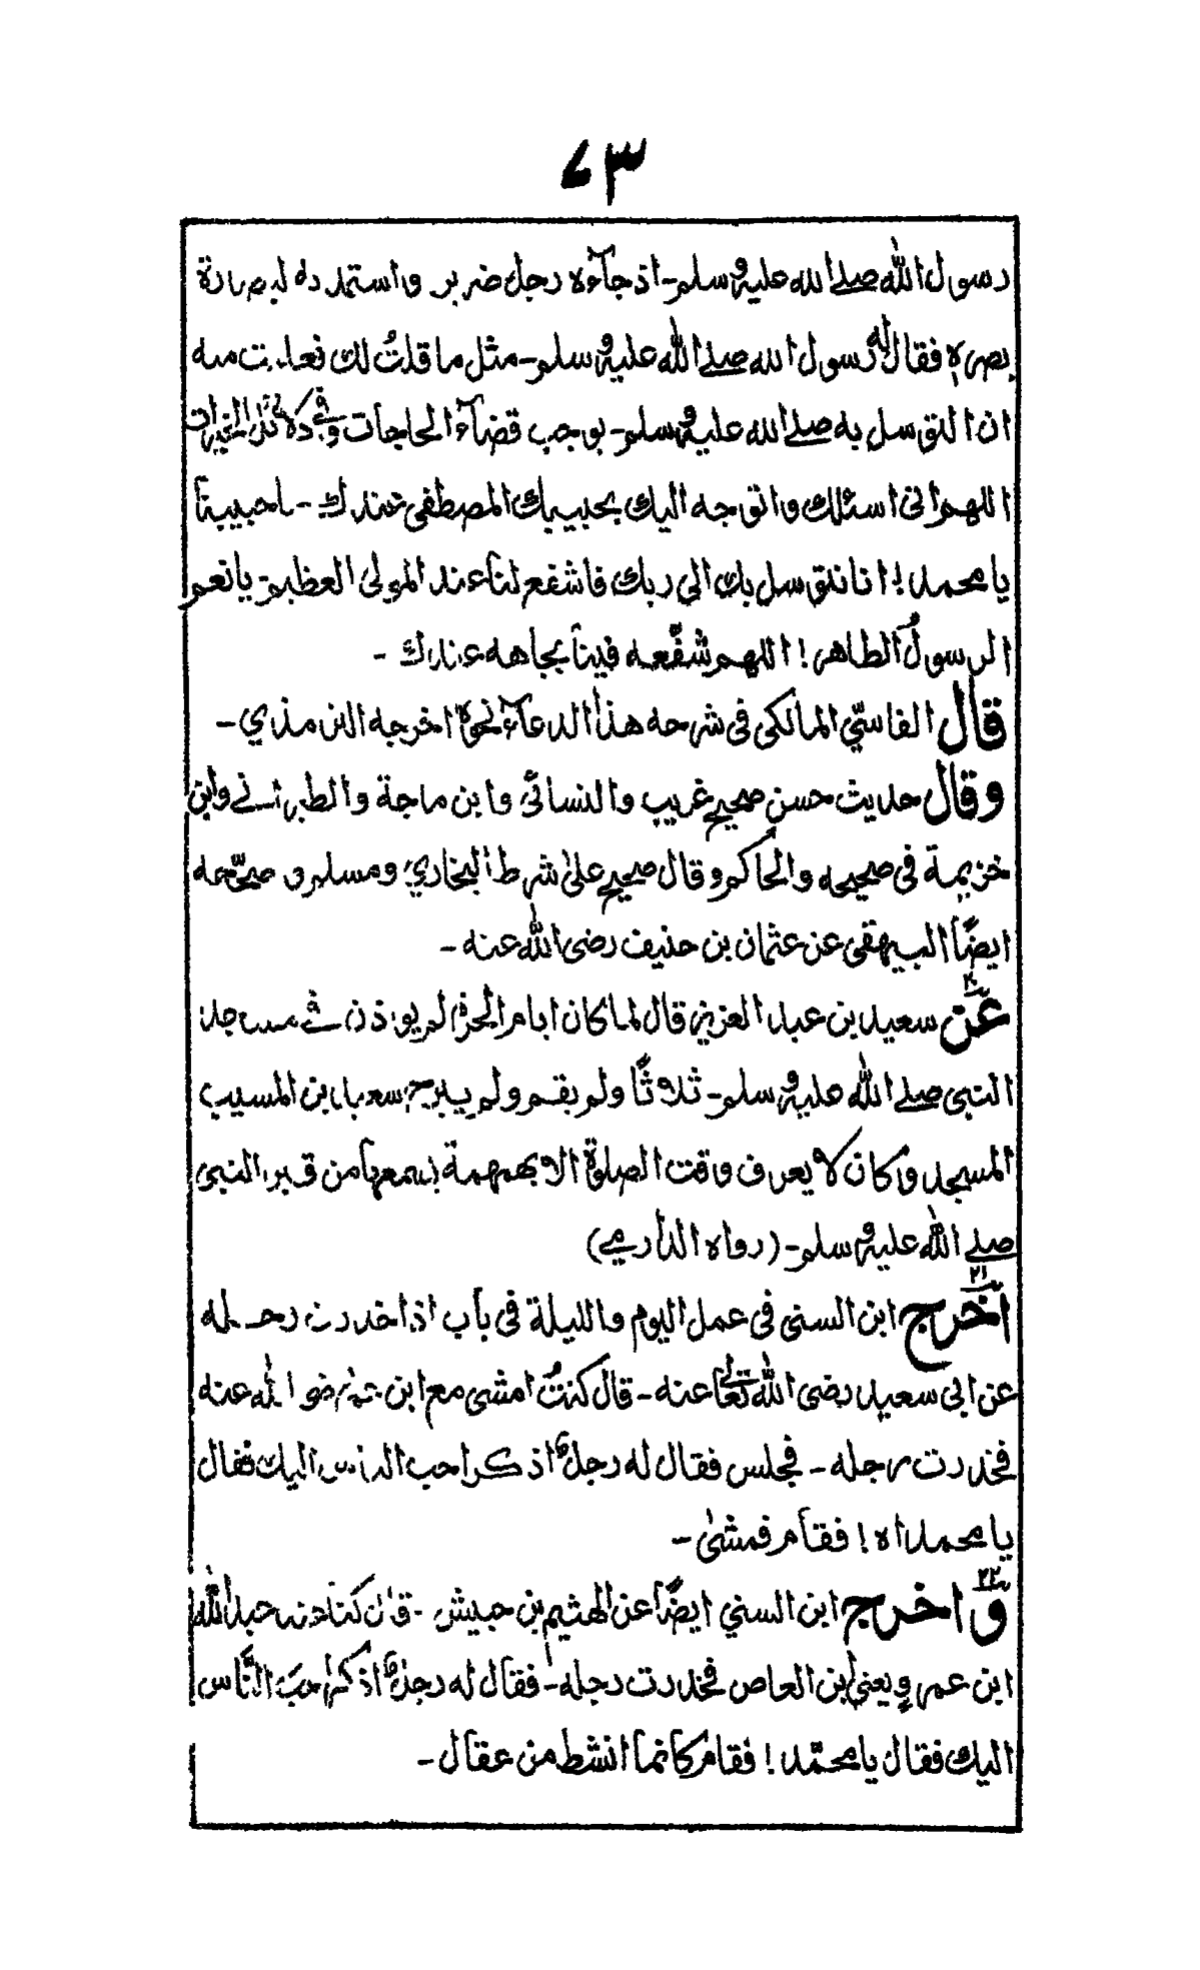 ٧٣
رسول الله صلے الله عليه وسلم۔ اذ جآءه رجل ضرير واستمد ده لبصارة
بصره فقال له رسول الله صلے الله عليه وسلم۔ مثل ما قلتُ لك منه
ان التوسل به صلے الله عليه وسلم۔ يوجب قضآء الحاجات وفي الخيرات
اللهم انى اسئلك واتوجه اليك بحبيبك المصطفى عندك ۔ يا حبيبنا
يا محمد! انا نتوسل بك الى ربك فاشفع لنا عند المولى العظيم۔ يا نعم
الرسولُ الطاهر! اللهم شفّعه فينا بجاهه عندك ۔
قال الفاسّي المالكى فى شرحه هذا الدعآء نحوه اخرجه الترمذي ۔
وقال حديث حسن صحيح غريب والنسائى وابن ماجة والطبرانے وابن
خزيمة فى صحيحه والحاكم وقال صحيح علىٰ شرط البخاري ومسلم و صحّحه
ايضًا البيهقى عن عثمان بن حنيف رضى الله عنه ۔
٢٠
عن سعيد بن عبد العزيز قال لما كان ايام الحرة لم يوذن فے مسجد
النبى صلے الله عليه وسلم۔ ثلاثًا ولم يقم ولم يبرح سعيد بن المسيب
المسجد وكان لا يعرف وقت الصلوة الا بهمهمة يسمعها من قبر النبى
صلے الله عليه وسلم۔ (رواه الدارمے)
٢١
اخرج ابن السنى فى عمل اليوم والليلة فى باب اذا خدرت رجله
عن ابى سعيد رضى الله تعالىٰ عنه ۔ قال كنتُ امشى مع ابن عمر رضى الله عنه
فخدرت رجله ۔ فجلس فقال له رجل اذكر احب الناس اليك فقال
يا محمداه! فقام فمشىٰ ۔
٢٢
واخرج ابن السني ايضًا عن الهثيم بن حبيش ۔ قال كنا عند عبد الله
ابن عمرو يعني ابن العاص فخدرت رجله۔ فقال له رجل اذكر احبّ النَّاس
اليك فقال يا محمّد! فقام كانما انشط من عقال ۔